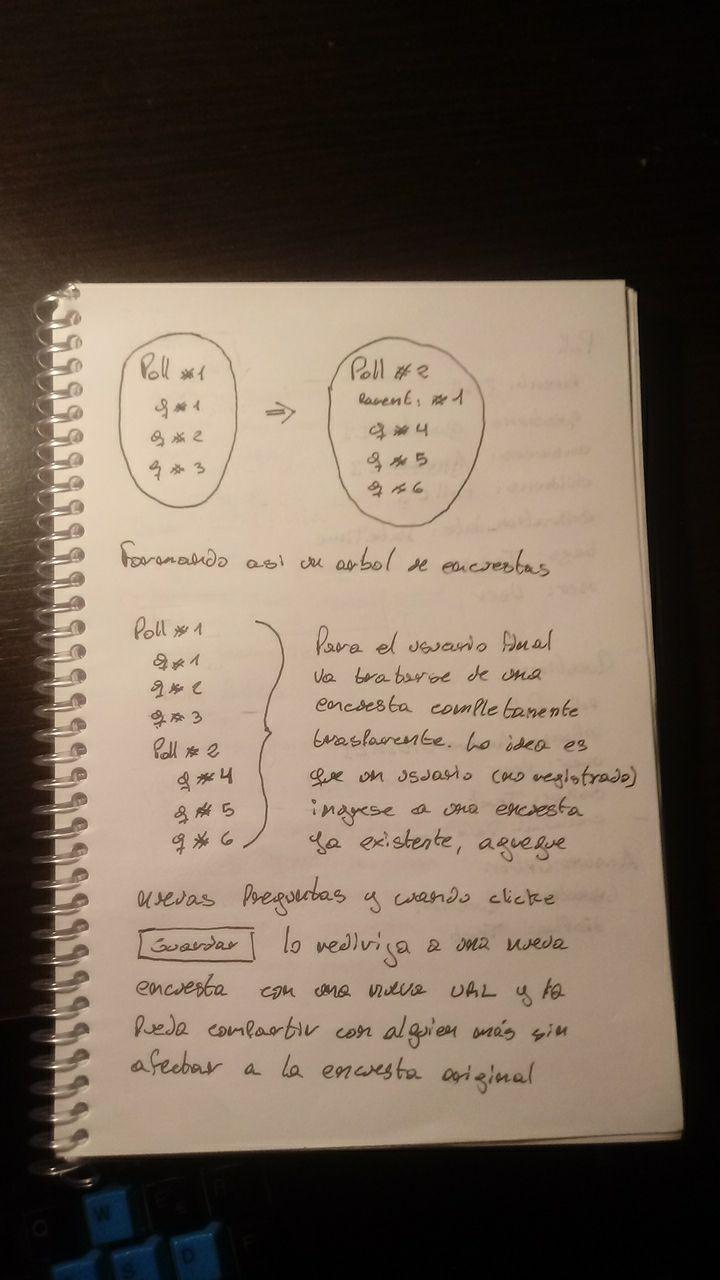 Poll #1
q #1
q #2
q #3
⇒
Poll #2
Parent: #1
q #4
q #5
q #6
Formando asi un arbol de encuestas
Poll #1
q #1
q #2
q #3
Poll #2
q #4
q #5
q #6
Para el usuario final
va tratarse de una
encuesta completamente
trasparente. La idea es
que un usuario (no registrado)
ingrese a una encuesta
ya existente, agregue
nuevas preguntas y cuando clicke
Guardar lo rediriga a una nueva
encuesta con una nueva URL y la
pueda compartir con alguien más sin
afectar a la encuesta original
W
S
D